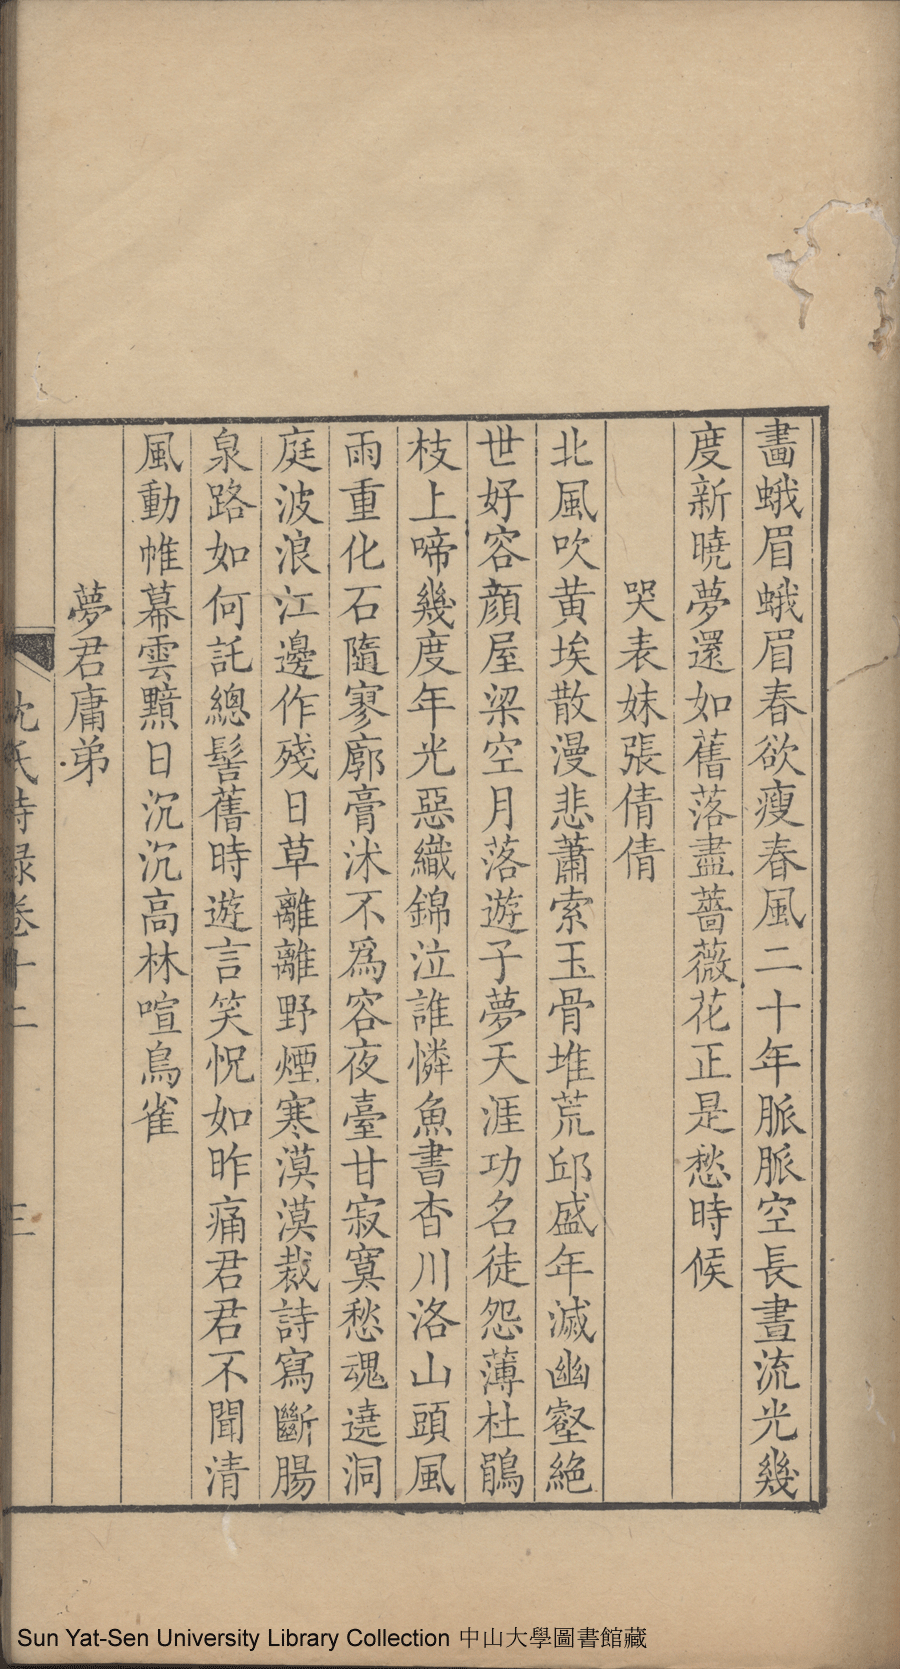 畵蛾眉蛾眉春欲瘦春風二十年脈脈空長晝流光幾
度新曉夢還如舊落盡薔薇花正是愁時候
哭表妹張倩倩
北風吹黃埃散漫悲蕭索玉骨堆荒邱盛年滅幽壑絶
世好容顏屋梁空月落遊子夢天涯功名徒怨薄杜鵑
枝上啼幾度年光惡織錦泣誰憐魚書杳川洛山頭風
雨重化石隨寥廓膏沐不爲容夜臺甘寂寞愁魂遶洞
庭波浪江邊作殘日草離離野煙寒漠漠裁詩寫斷腸
泉路如何託總髻舊時遊言笑怳如昨痛君君不聞清
風動帷幕雲黯日沉沉高林喧鳥雀
夢君庸弟
沈氏詩録卷十二
三
Sun Yat-Sen University Library Collection 中山大學圖書館藏